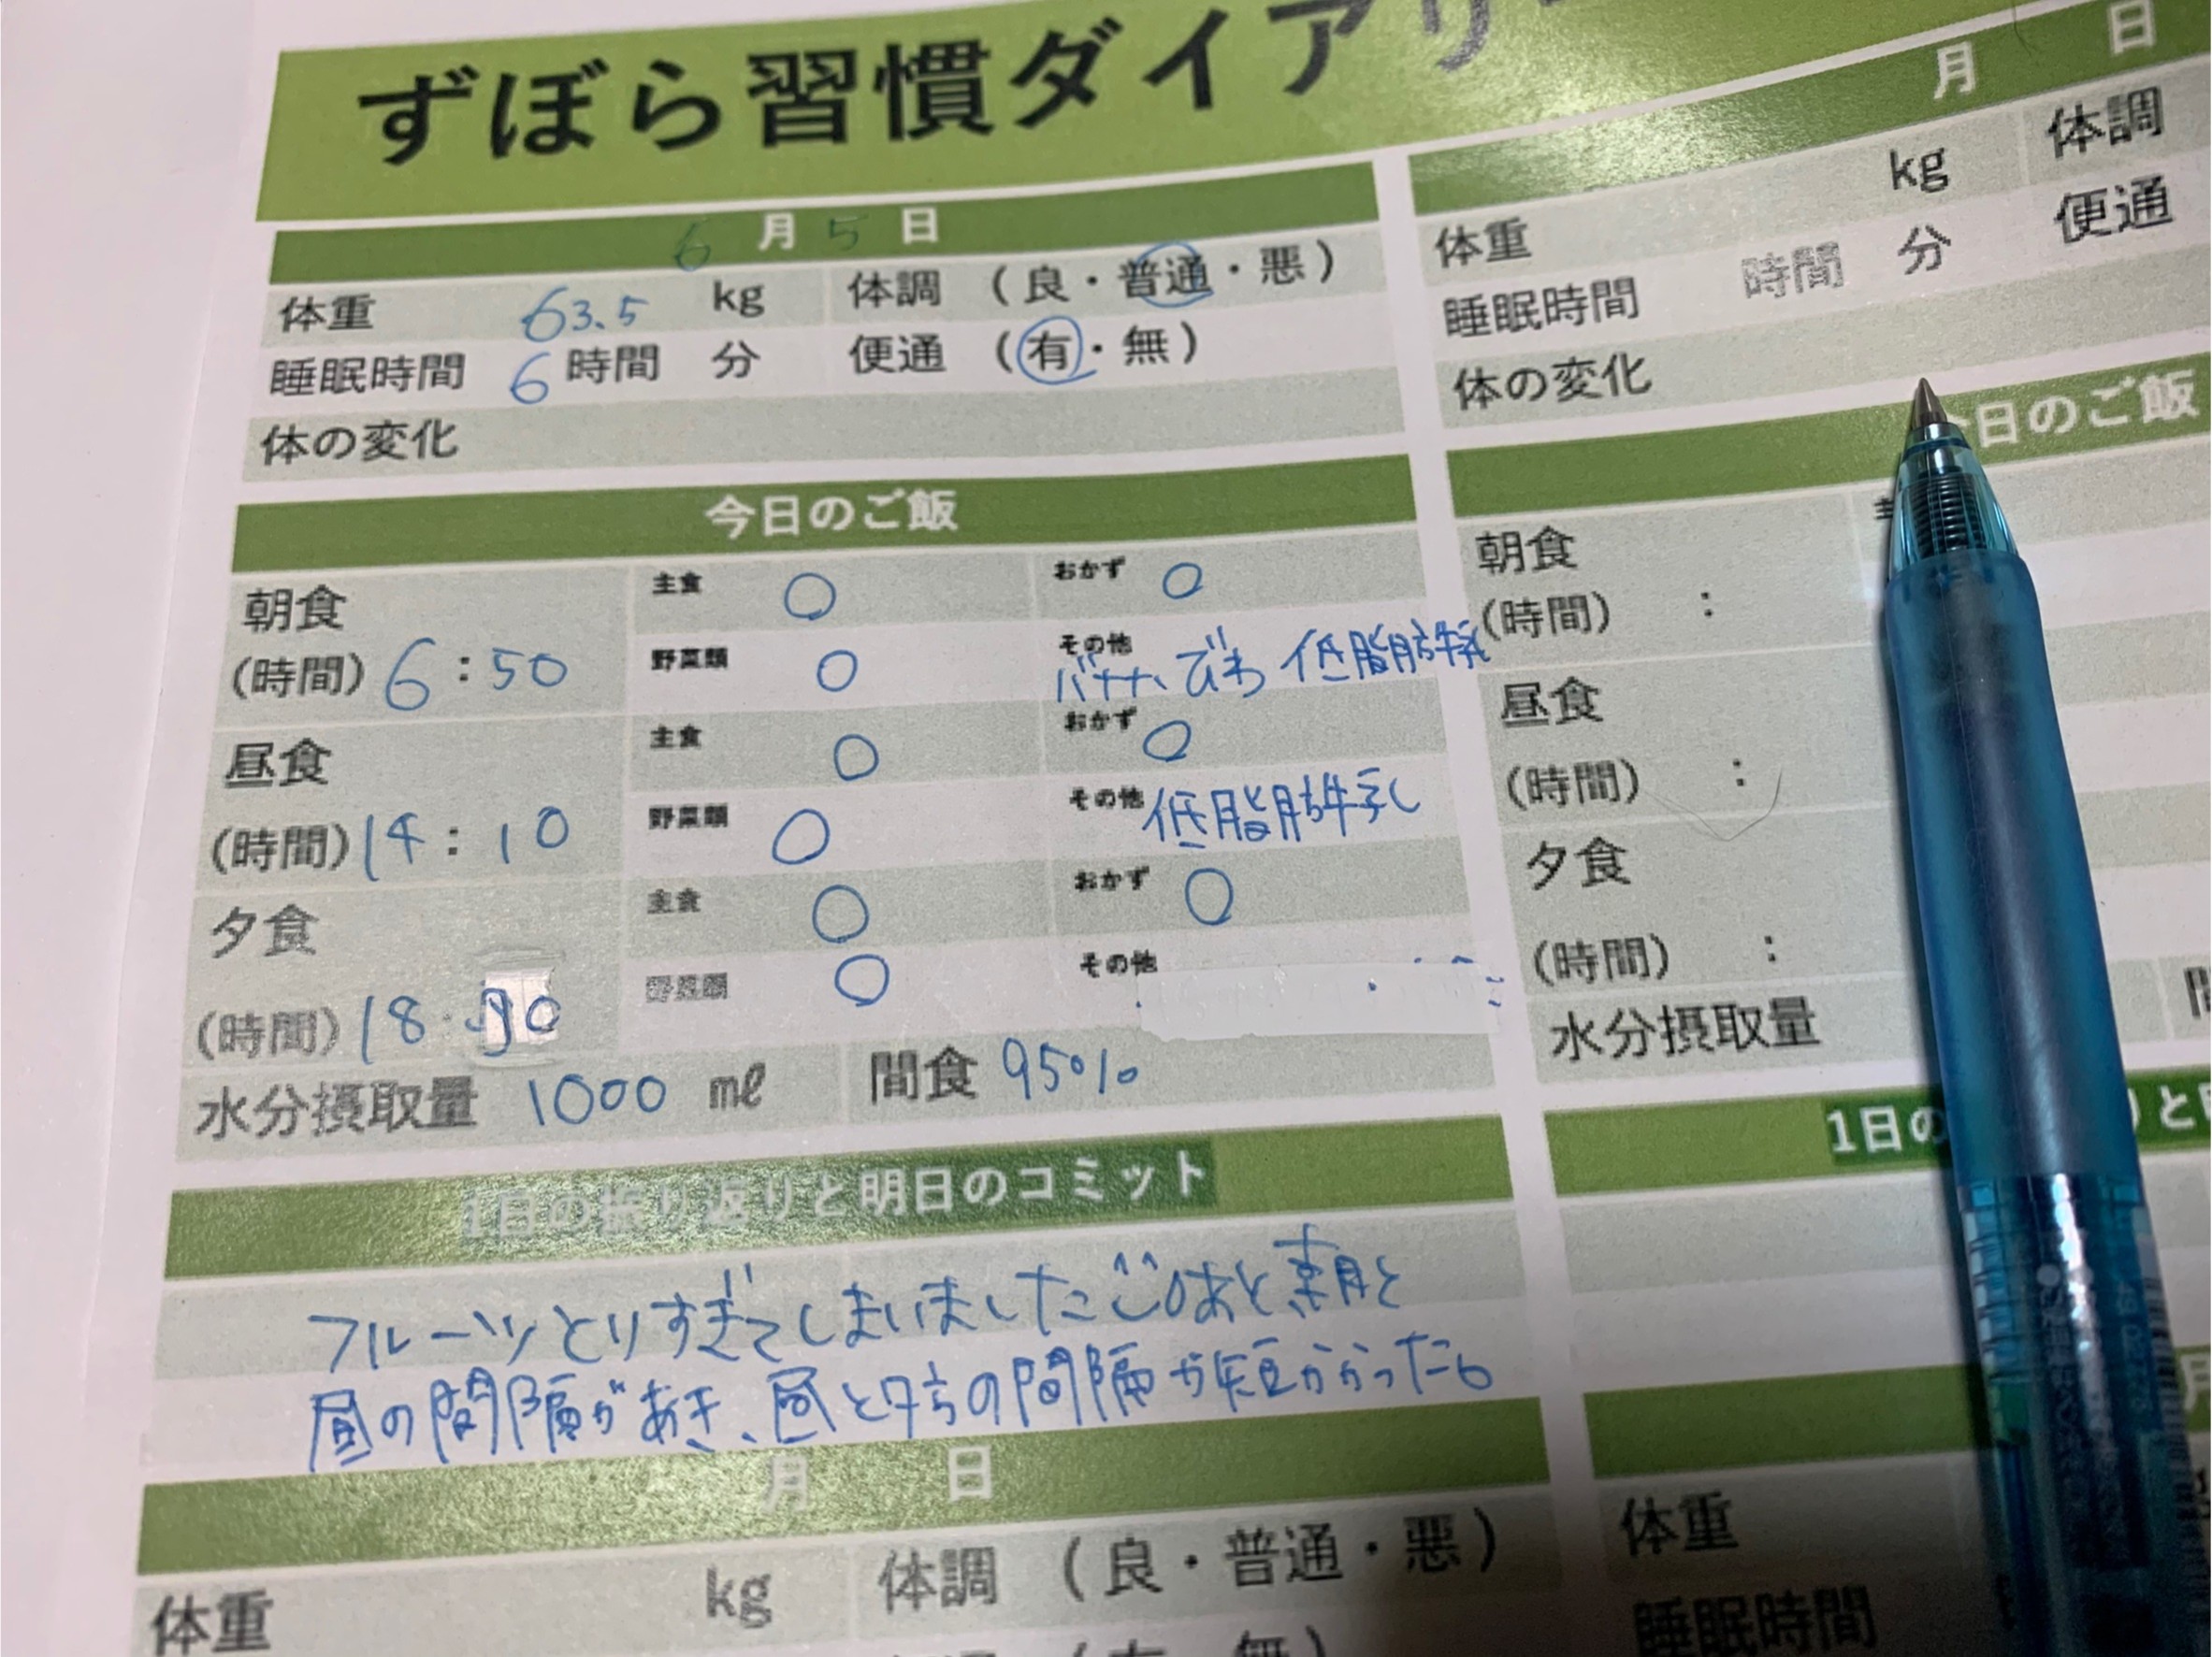 ずぼら習慣ダイアリー
6月5日
体重 63.5 kg 体調 (良・普通・悪)
睡眠時間 6時間 分 便通 (有・無)
体の変化
今日のご飯
朝食 主食 ○ おかず ○
(時間) 6:50 野菜類 ○ その他 バナナ、びわ 低脂肪牛乳
昼食 主食 ○ おかず ○
(時間) 14:10 野菜類 ○ その他 低脂肪牛乳
夕食 主食 ○ おかず ○
(時間) 18: 野菜類 ○ その他
水分摂取量 1000 ㎖ 間食 95%
1日の振り返りと明日のコミット
フルーツとりすぎてしまいました あと、朝と
昼の間隔があき、昼と夕方の間隔が短かかった。
月 日
体重 kg 体調 (良・普通・悪)
(有・無)
月 日
体重 kg 体調
睡眠時間 時間 分 便通
体の変化
今日のご飯
朝食
(時間) :
昼食
(時間) :
夕食
(時間) :
水分摂取量
1日の
月
体重
睡眠時間